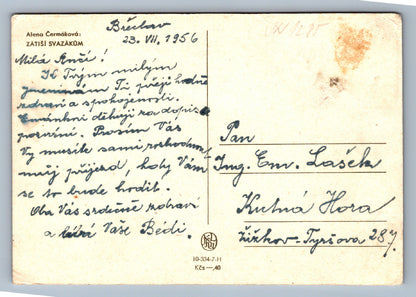 Alena Čermáková:
ZÁTIŠÍ SVAZÁKŮM
Břeclav
23. VII. 1956
Milá Anči!
K Tvým milým
jmeninám Ti přeji hodně
zdraví a spokojenosti.
děkuji za dopis a
pozvání. Prosím Vás
Vy musíte sami rozhodnout
můj příjezd, kdy Vám
se to bude hodit.
Oba Vás srdečně zdraví
a líbá Vaše Bédi.
Pan
Ing. Em. Lašek
Kutná Hora
Žižkov-Tyršova 287.
19-334-7-H
Kčs —,40